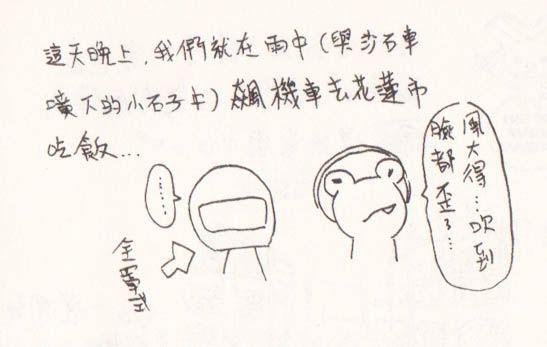 這天晚上，我們就在雨中（與砂石車
噴下的小石子中）飆機車去花蓮市
吃飯…
……
全罩式
風大得…吹到
臉都歪了…